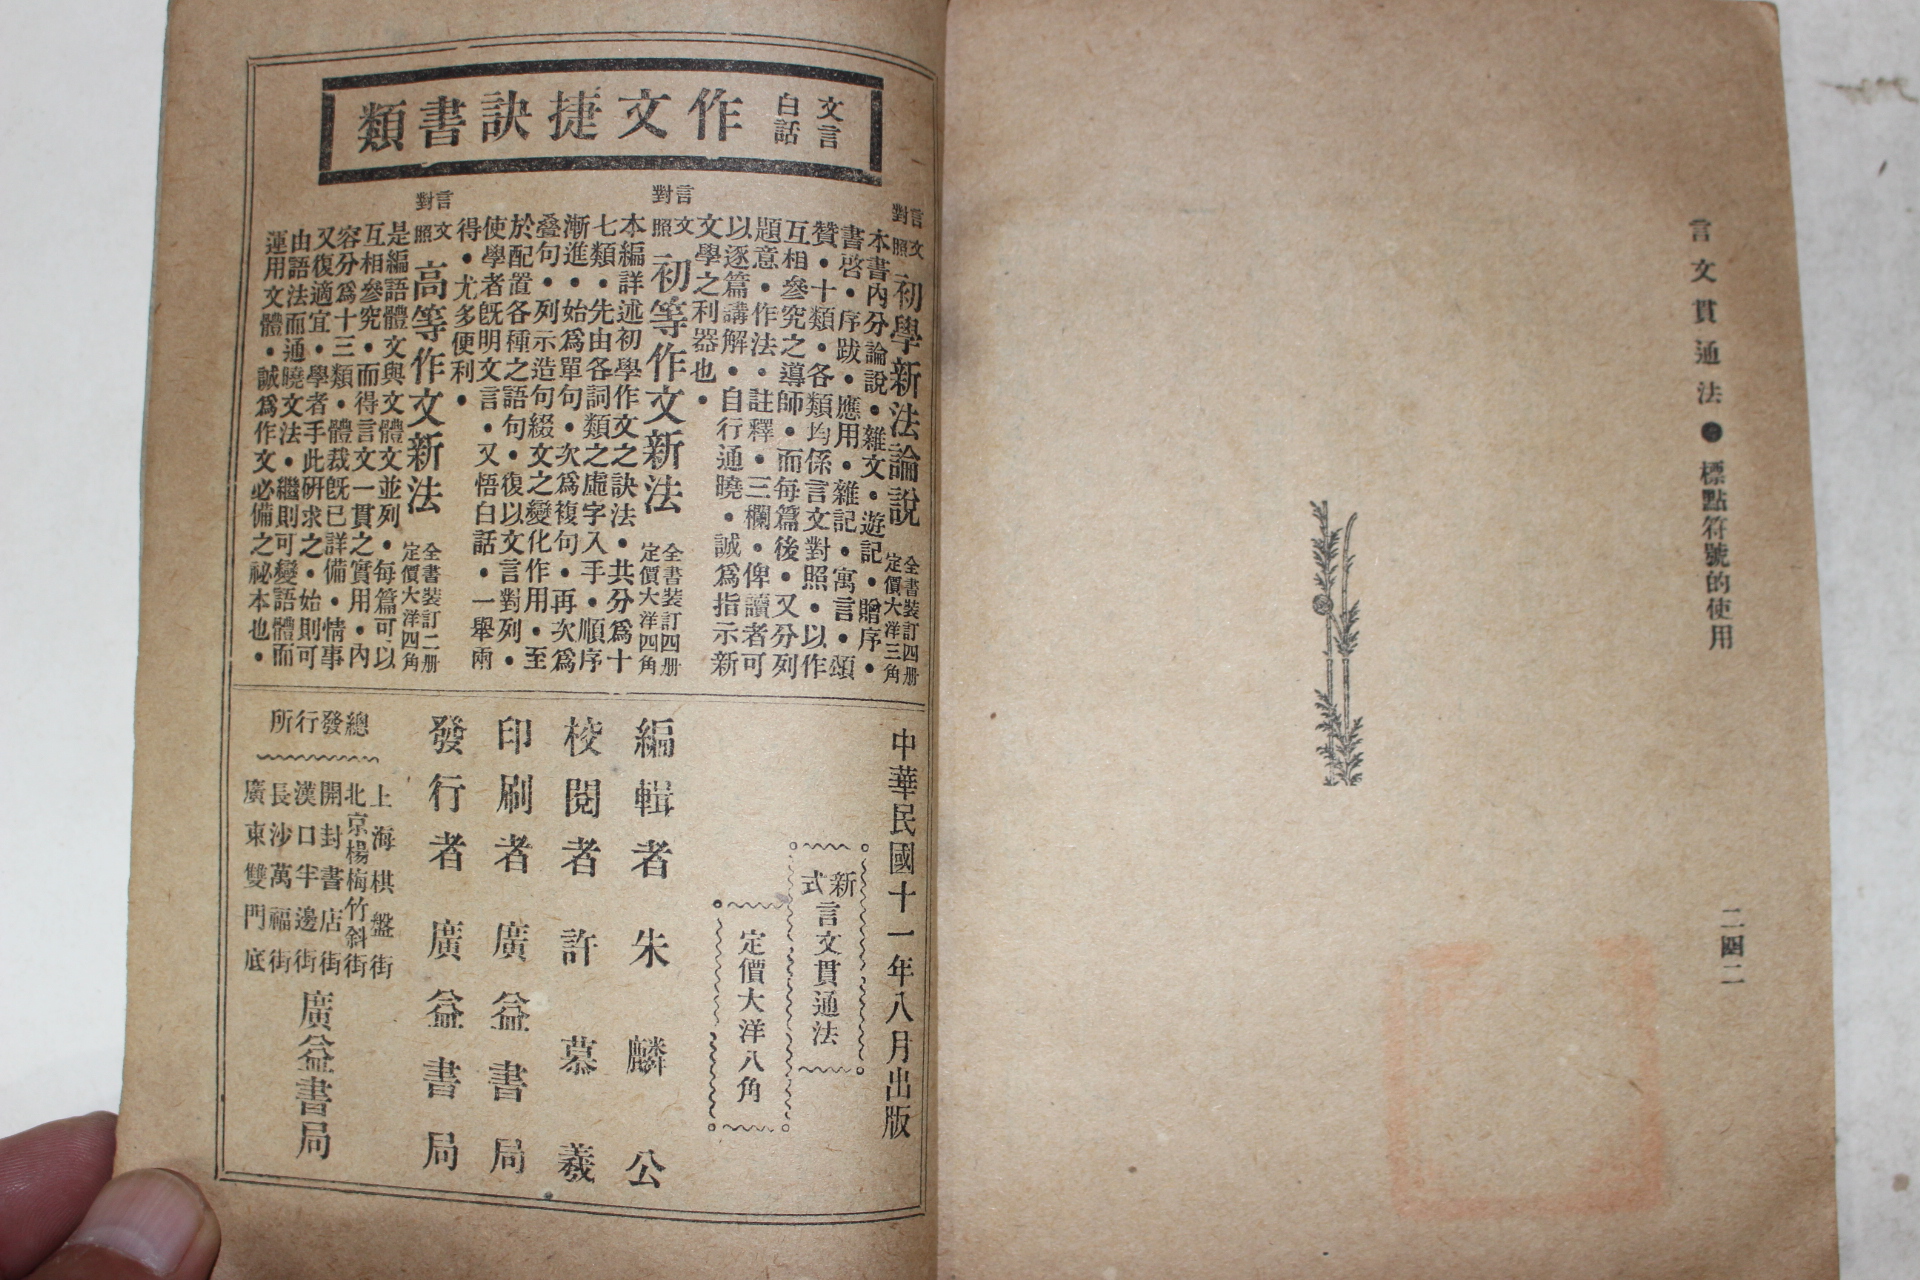 言文貫通法●標點符號的使用
二四二
文言
白話
作文捷訣書類
言文
對照
初學新法論說
全書裝訂四册
定價大洋三角
本書內分論說・雜文・遊記・贈序・
書啓・序跋・應用・雜記・寓言・頌
贊・十類・各類均係言文對照・以作
互相參究之導師・而每篇後・又分列
題意・作法・註釋・三欄・俾讀者可
以逐篇講解・自行通曉・誠爲指示新
文學之利器也・
言文
對照
初等作文新法
全書裝訂四册
定價大洋四角
本編詳述初學作文之訣法・共分爲十
七類・先由各詞類之虛字入手・順序
漸進・始爲單句・次爲複句・再次爲
叠句・列示造句綴文之變化作用・至
於配置各種之語句・復以文言對列・
使學者旣明文言・又悟白話・一舉兩
得・尤多便利・
言文
對照
高等作文新法
全書裝訂二册
定價大洋四角
是編語體文與文體文並列・每篇可以
互相參究・而得言文一貫之實用・內
容分爲十三類・體裁旣已詳備・情事
又復適宜・學者手此硏求之・始則可
由語法而通曉文法・繼則可變語體而
運用文體・誠爲作文必備之祕本也・
中華民國十一年八月出版
新式言文貫通法
定價大洋八角
編輯者 朱麟公
校閱者 許慕羲
印刷者 廣益書局
發行者 廣益書局
總發行所
上海棋盤街
北京楊梅竹斜街
開封書店街
漢口半邊街
長沙萬福街
廣東雙門底
廣益書局